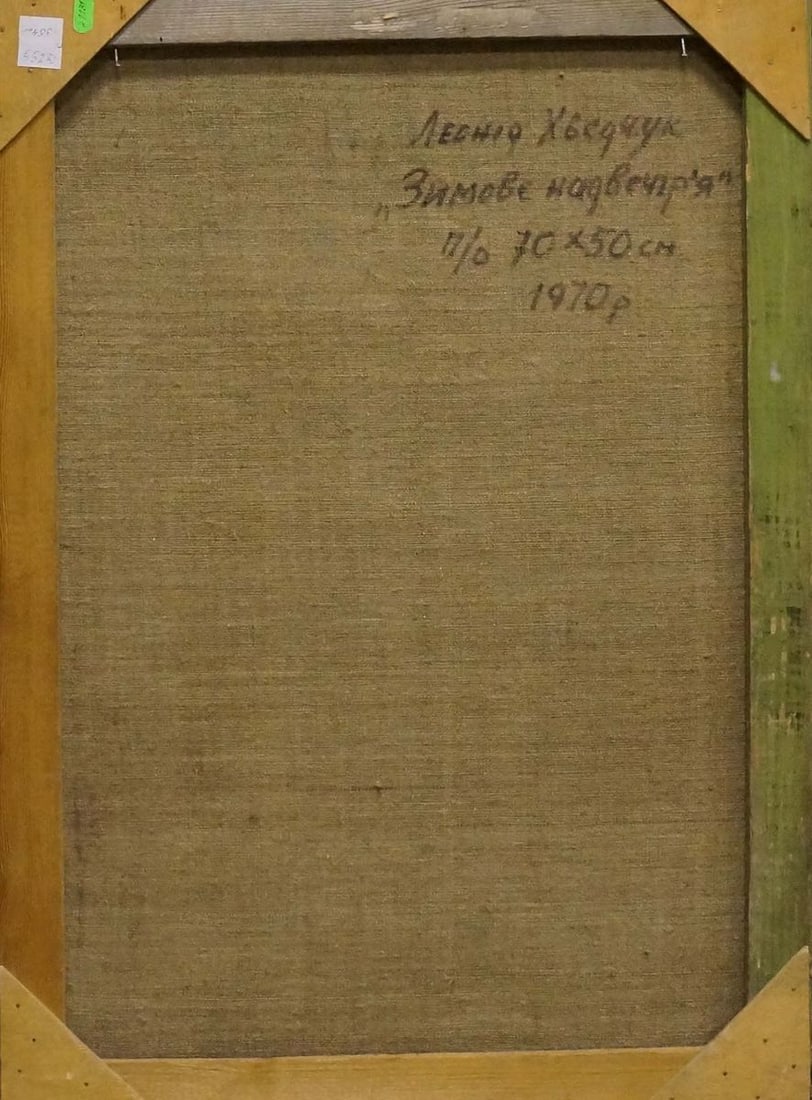 Леонід Хведчук
„Зимове надвечір'я"
п/о 70×50 см
1970 р